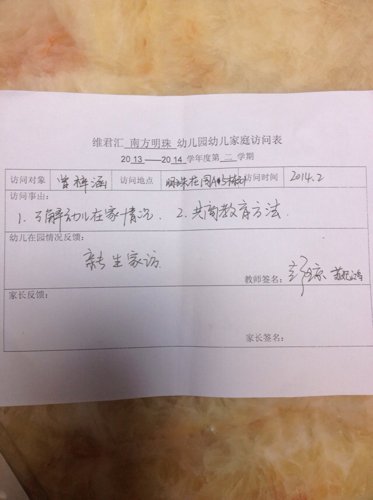 维君汇 南方明珠 幼儿园幼儿家庭访问表
2013——2014 学年度第二学期
访问对象 曾梓涵 访问地点 明珠花园A 访问时间 2014.2
访问事由:
1. 了解幼儿在家情况. 2. 共商教育方法.
幼儿在园情况反馈:
新生家访
教师签名:
家长反馈:
家长签名: